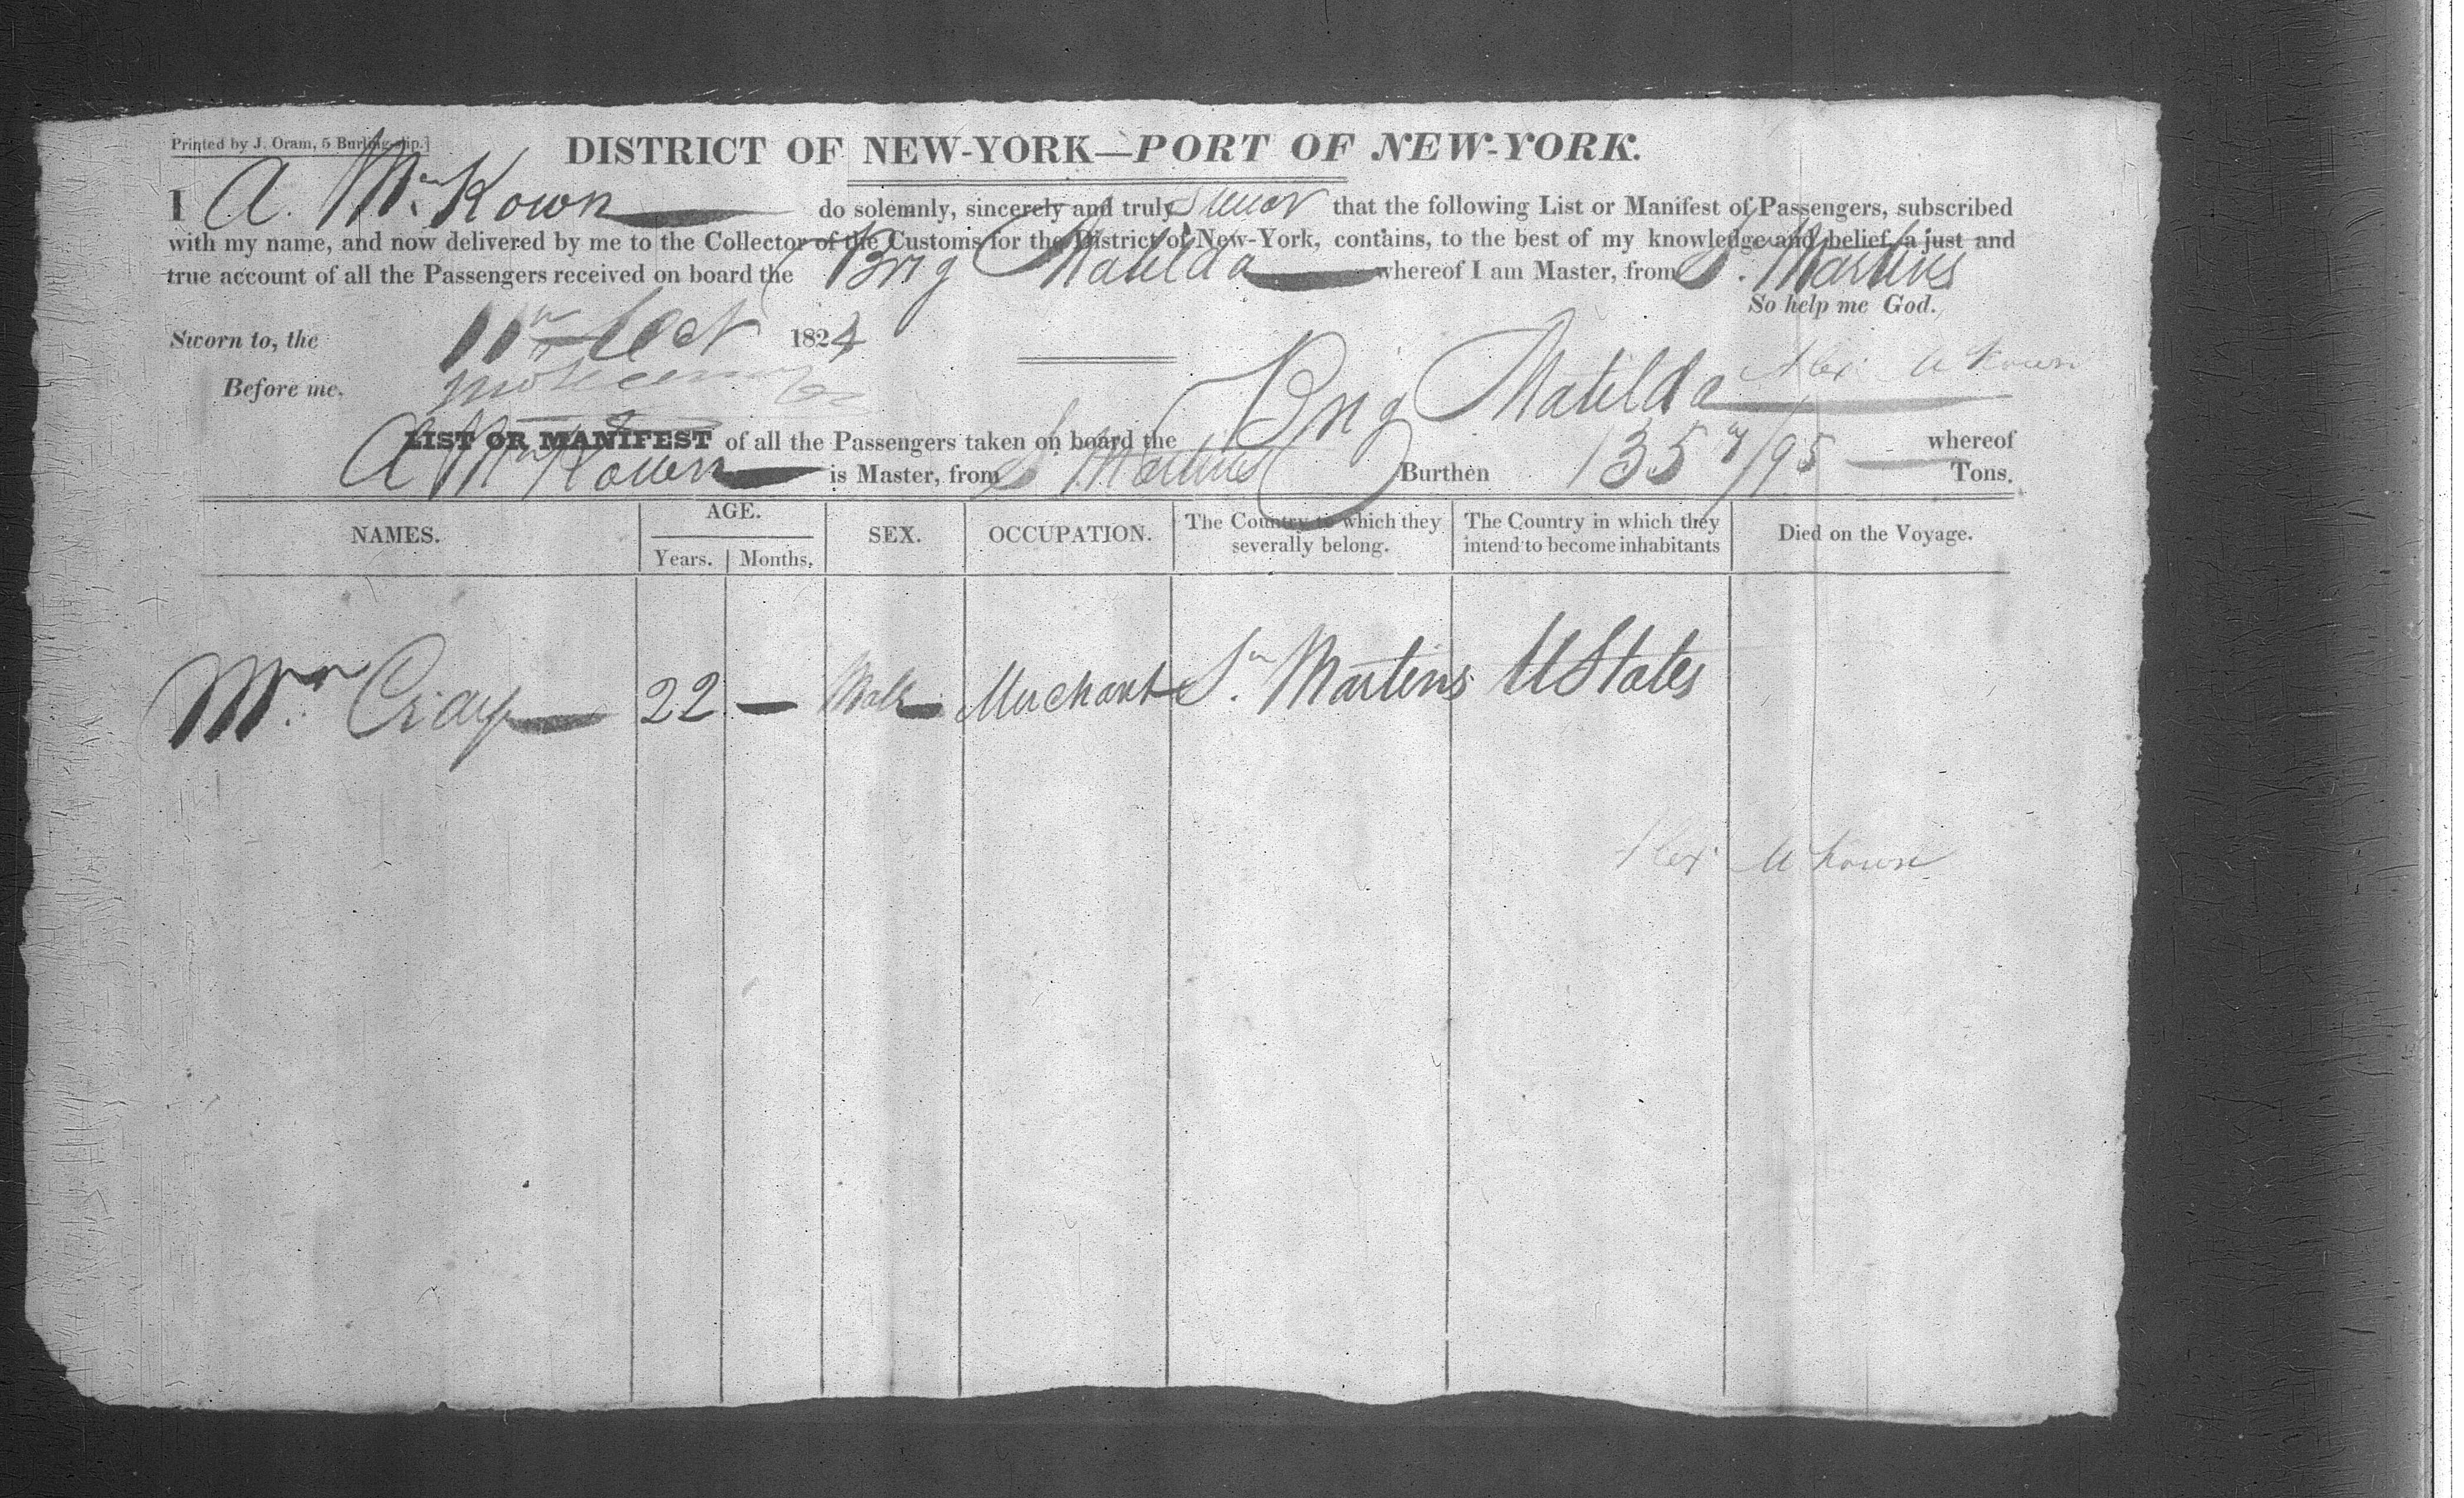 Printed by J. Oram, 5 Burling-slip.]
DISTRICT OF NEW-YORK—PORT OF NEW-YORK.
I A. Mc.Kown do solemnly, sincerely and truly swear that the following List or Manifest of Passengers, subscribed
with my name, and now delivered by me to the Collector of the Customs for the District of New-York, contains, to the best of my knowledge and belief, a just and
true account of all the Passengers received on board the Brig Matilda whereof I am Master, from St. Martins
So help me God.
Sworn to, the 11th Oct 1824
Before me,
Alex McKown
LIST OR MANIFEST of all the Passengers taken on board the Brig Matilda whereof
A McKown is Master, from St Martins Burthen 135 /95 Tons.
NAMES. AGE. SEX. OCCUPATION. The Country to which they severally belong. The Country in which they intend to become inhabitants Died on the Voyage.
Years. Months.
Mr. 22 — Male Merchant St. Martens UStates
Alex McKown